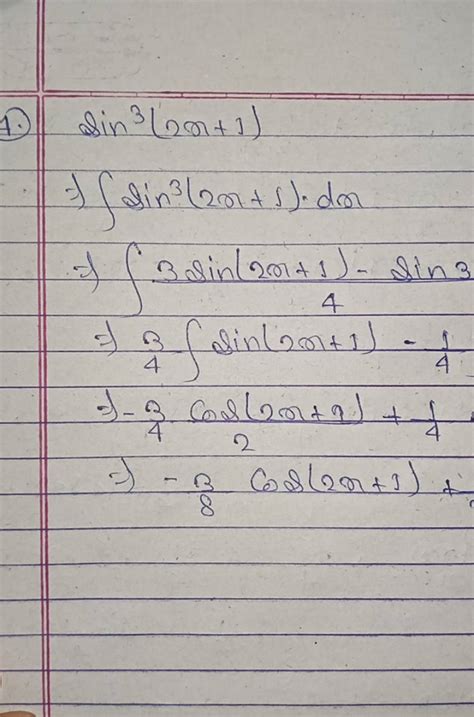 1. sin³(2x+1)
⇒ ∫ sin³(2x+1)·dx
⇒ ∫ 3sin(2x+1) - sin3 / 4
⇒ 3/4 ∫ sin(2x+1) - 1/4
⇒ -3/4 cos(2x+1)/2 + 1/4
⇒ -3/8 cos(2x+1) +